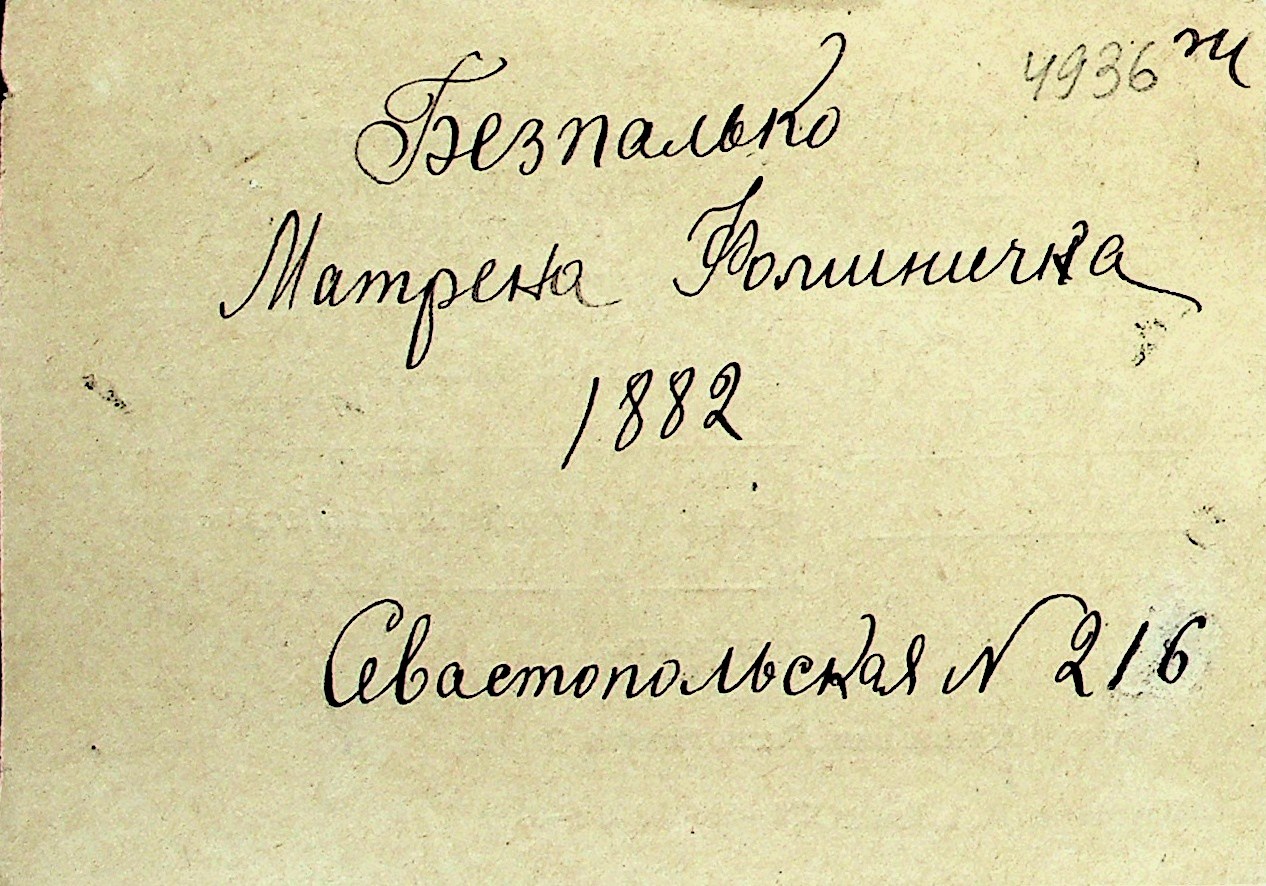 4936 ж
Безпалько
Матрена Фоминична
1882
Севастопольская N 216